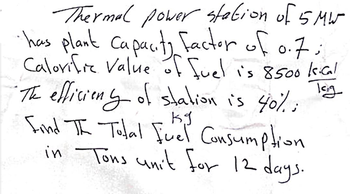 Thermal power station of 5 MW
has plant Capacity factor of 0.7;
Calorific Value of fuel is 8500 kcal/kg
The efficiency of station is 40%;
Find The Total fuel Consumption
kg
in Tons unit for 12 days.